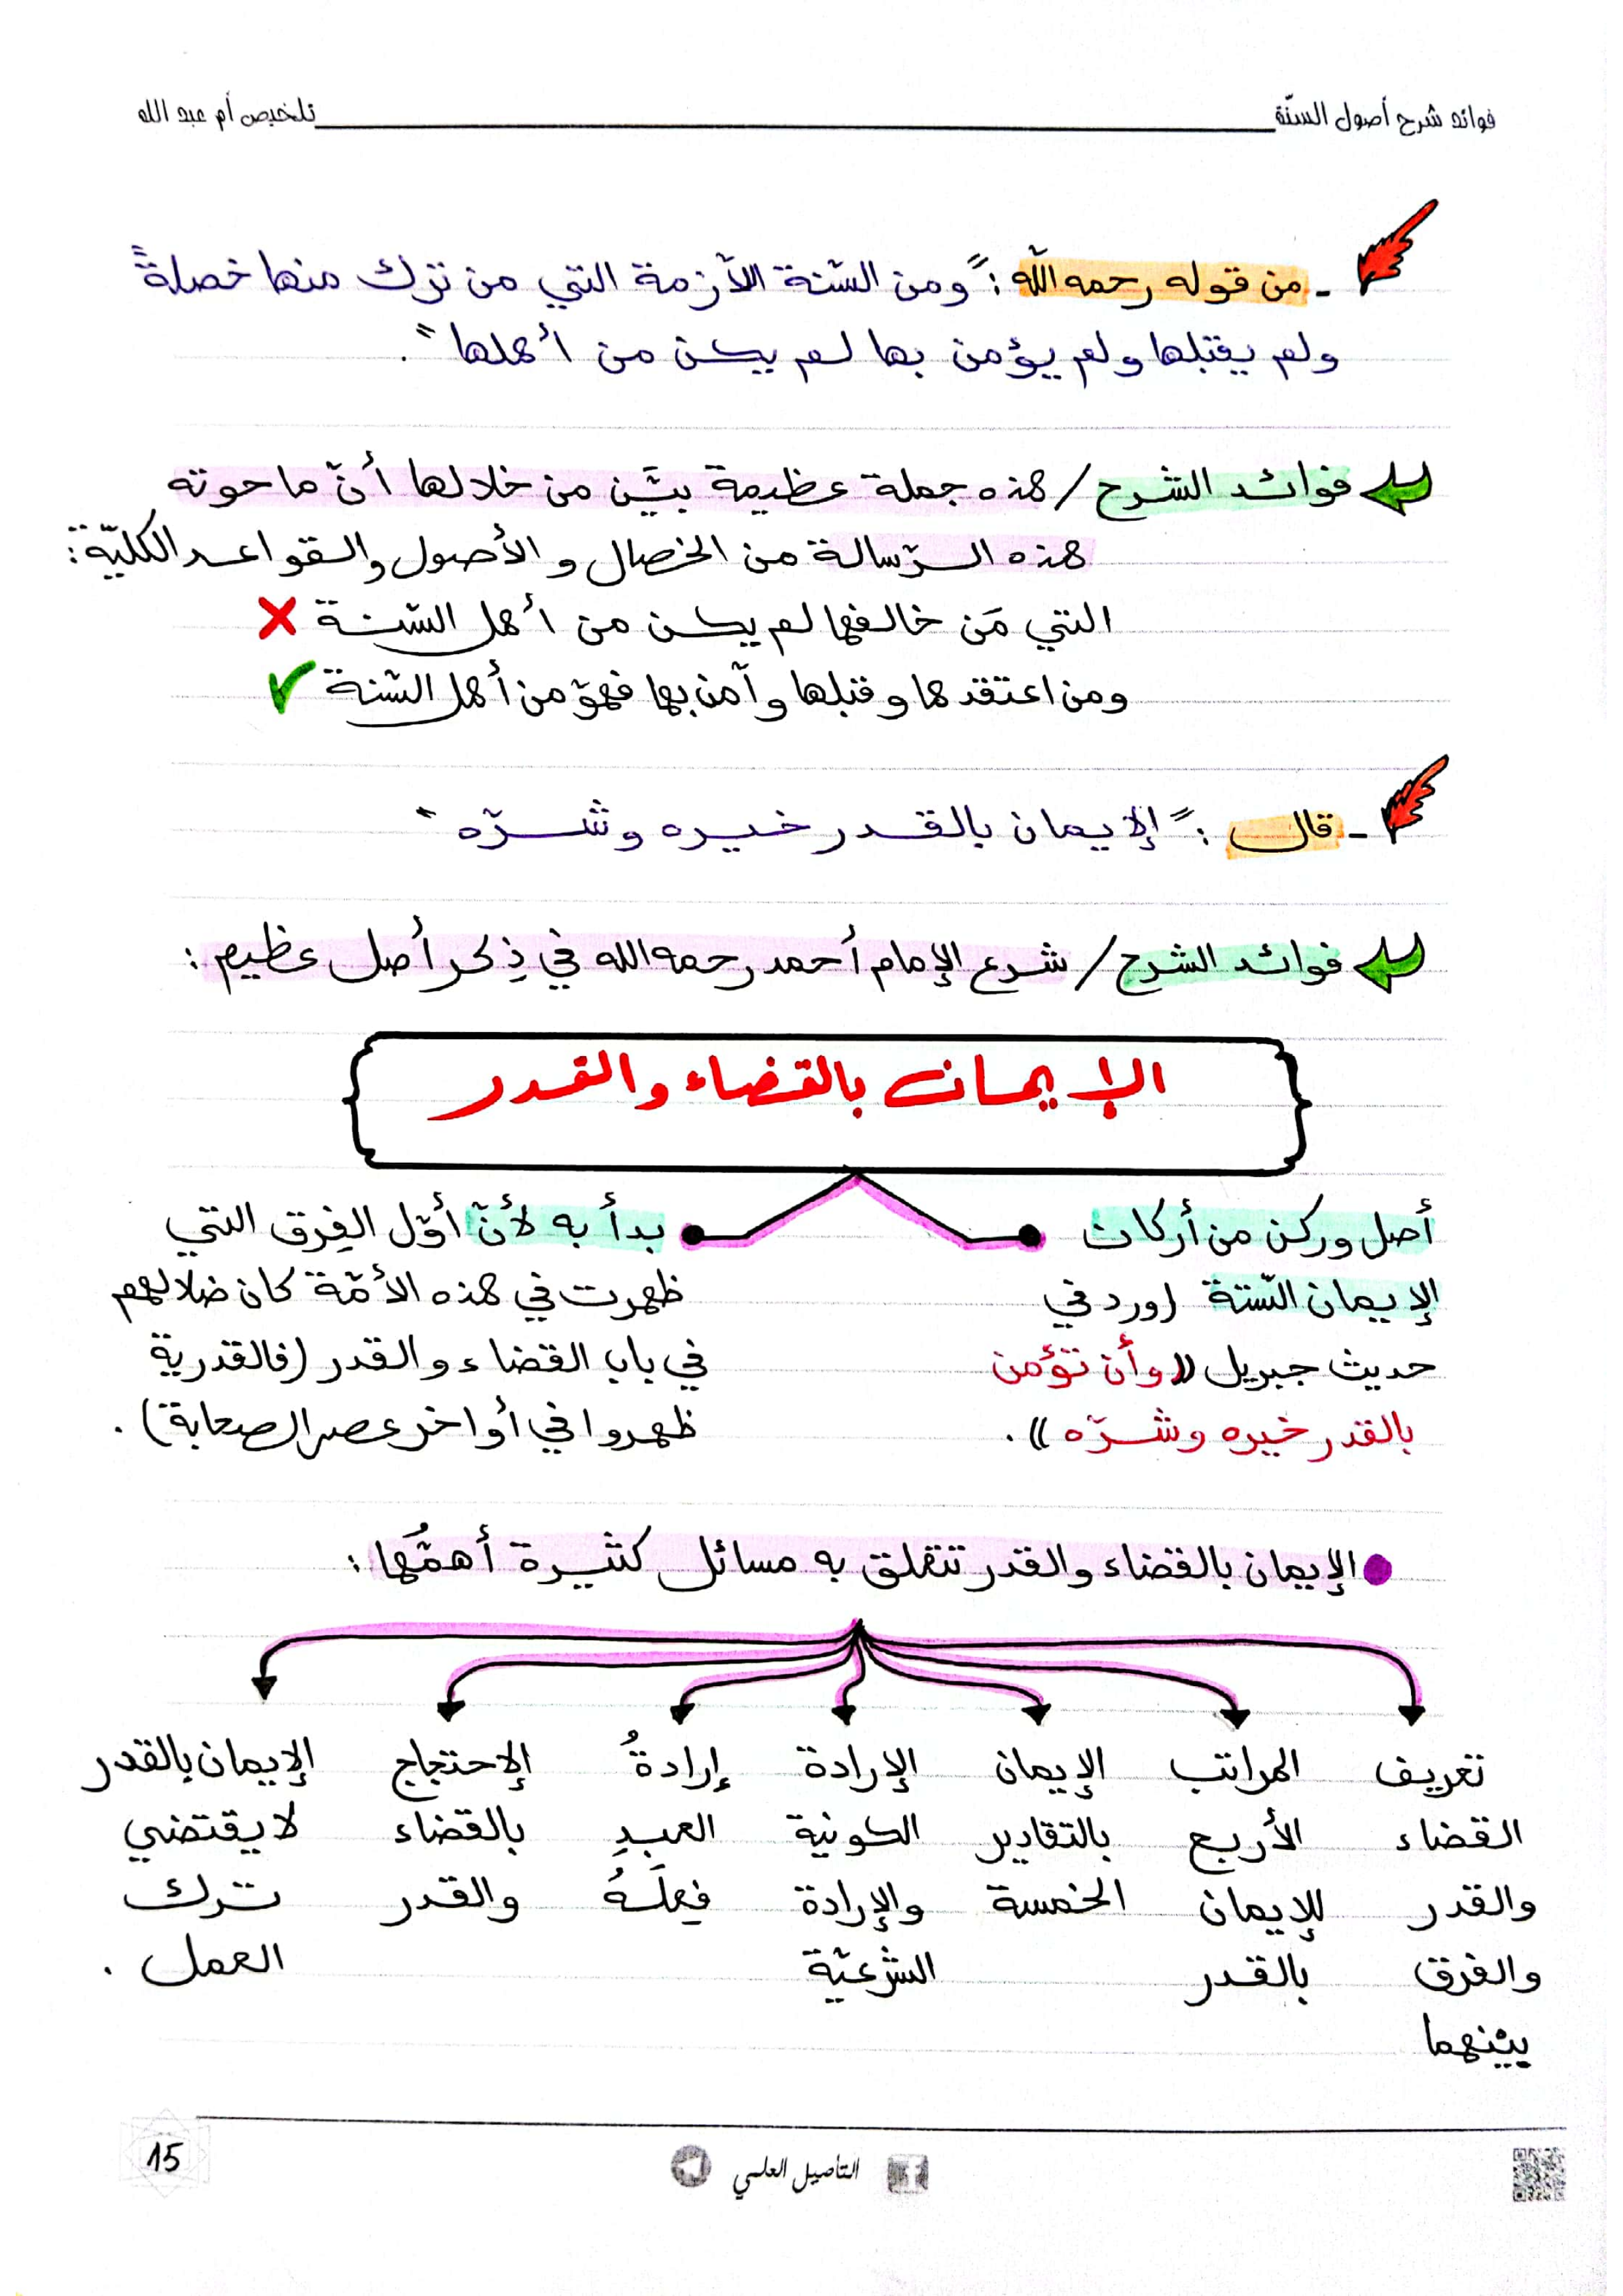 فوائد شرح أصول السنّة
تلخيص أم عبد الله
ـ من قوله رحمه الله : " ومن السّنة اللّازمة التي من ترك منها خصلةً
ولم يقبلها ولم يؤمن بها لم يكن من أهلها " .
فوائد الشرح / هذه جملة عظيمة بيَّن من خلالها أنّ ما حوته
هذه الرّسالة من الخصال و الأصول والقواعد الكليّة :
التي مَن خالفها لم يكن من أهل السّنة ✗
ومن اعتقدها وقبلها وآمن بها فهوّ من أهل السّنة ✓
ـ قال : " الإيمان بالقدر خيره وشرّه "
فوائد الشرح / شرع الإمام أحمد رحمه الله في ذِكر أصل عظيم :
الإيمان بالقضاء والقدر
أصل وركن من أركان
الإيمان السّتة (ورد في
حديث جبريل ((وأن تؤمن
بالقدر خيره وشرّه )) .
بدأ به لأنّ أوّل الفِرق التي
ظهرت في هذه الأمّة كان ضلالهم
في باب القضاء والقدر (فالقدرية
ظهروا في أواخر عصر الصحابة) .
الإيمان بالقضاء والقدر تتعلق به مسائل كثيرة أهمُّها :
تعريف
القضاء
والقدر
والفرق
بينهما
المراتب
الأربع
للإيمان
بالقدر
الإيمان
بالتقادير
الخمسة
الإرادة
الكونية
والإرادة
الشرعيّة
إرادةُ
العبدِ
فِعلَهُ
الإحتجاج
بالقضاء
والقدر
الإيمان بالقدر
لا يقتضي
ترك
العمل .
التأصيل العلمي
15